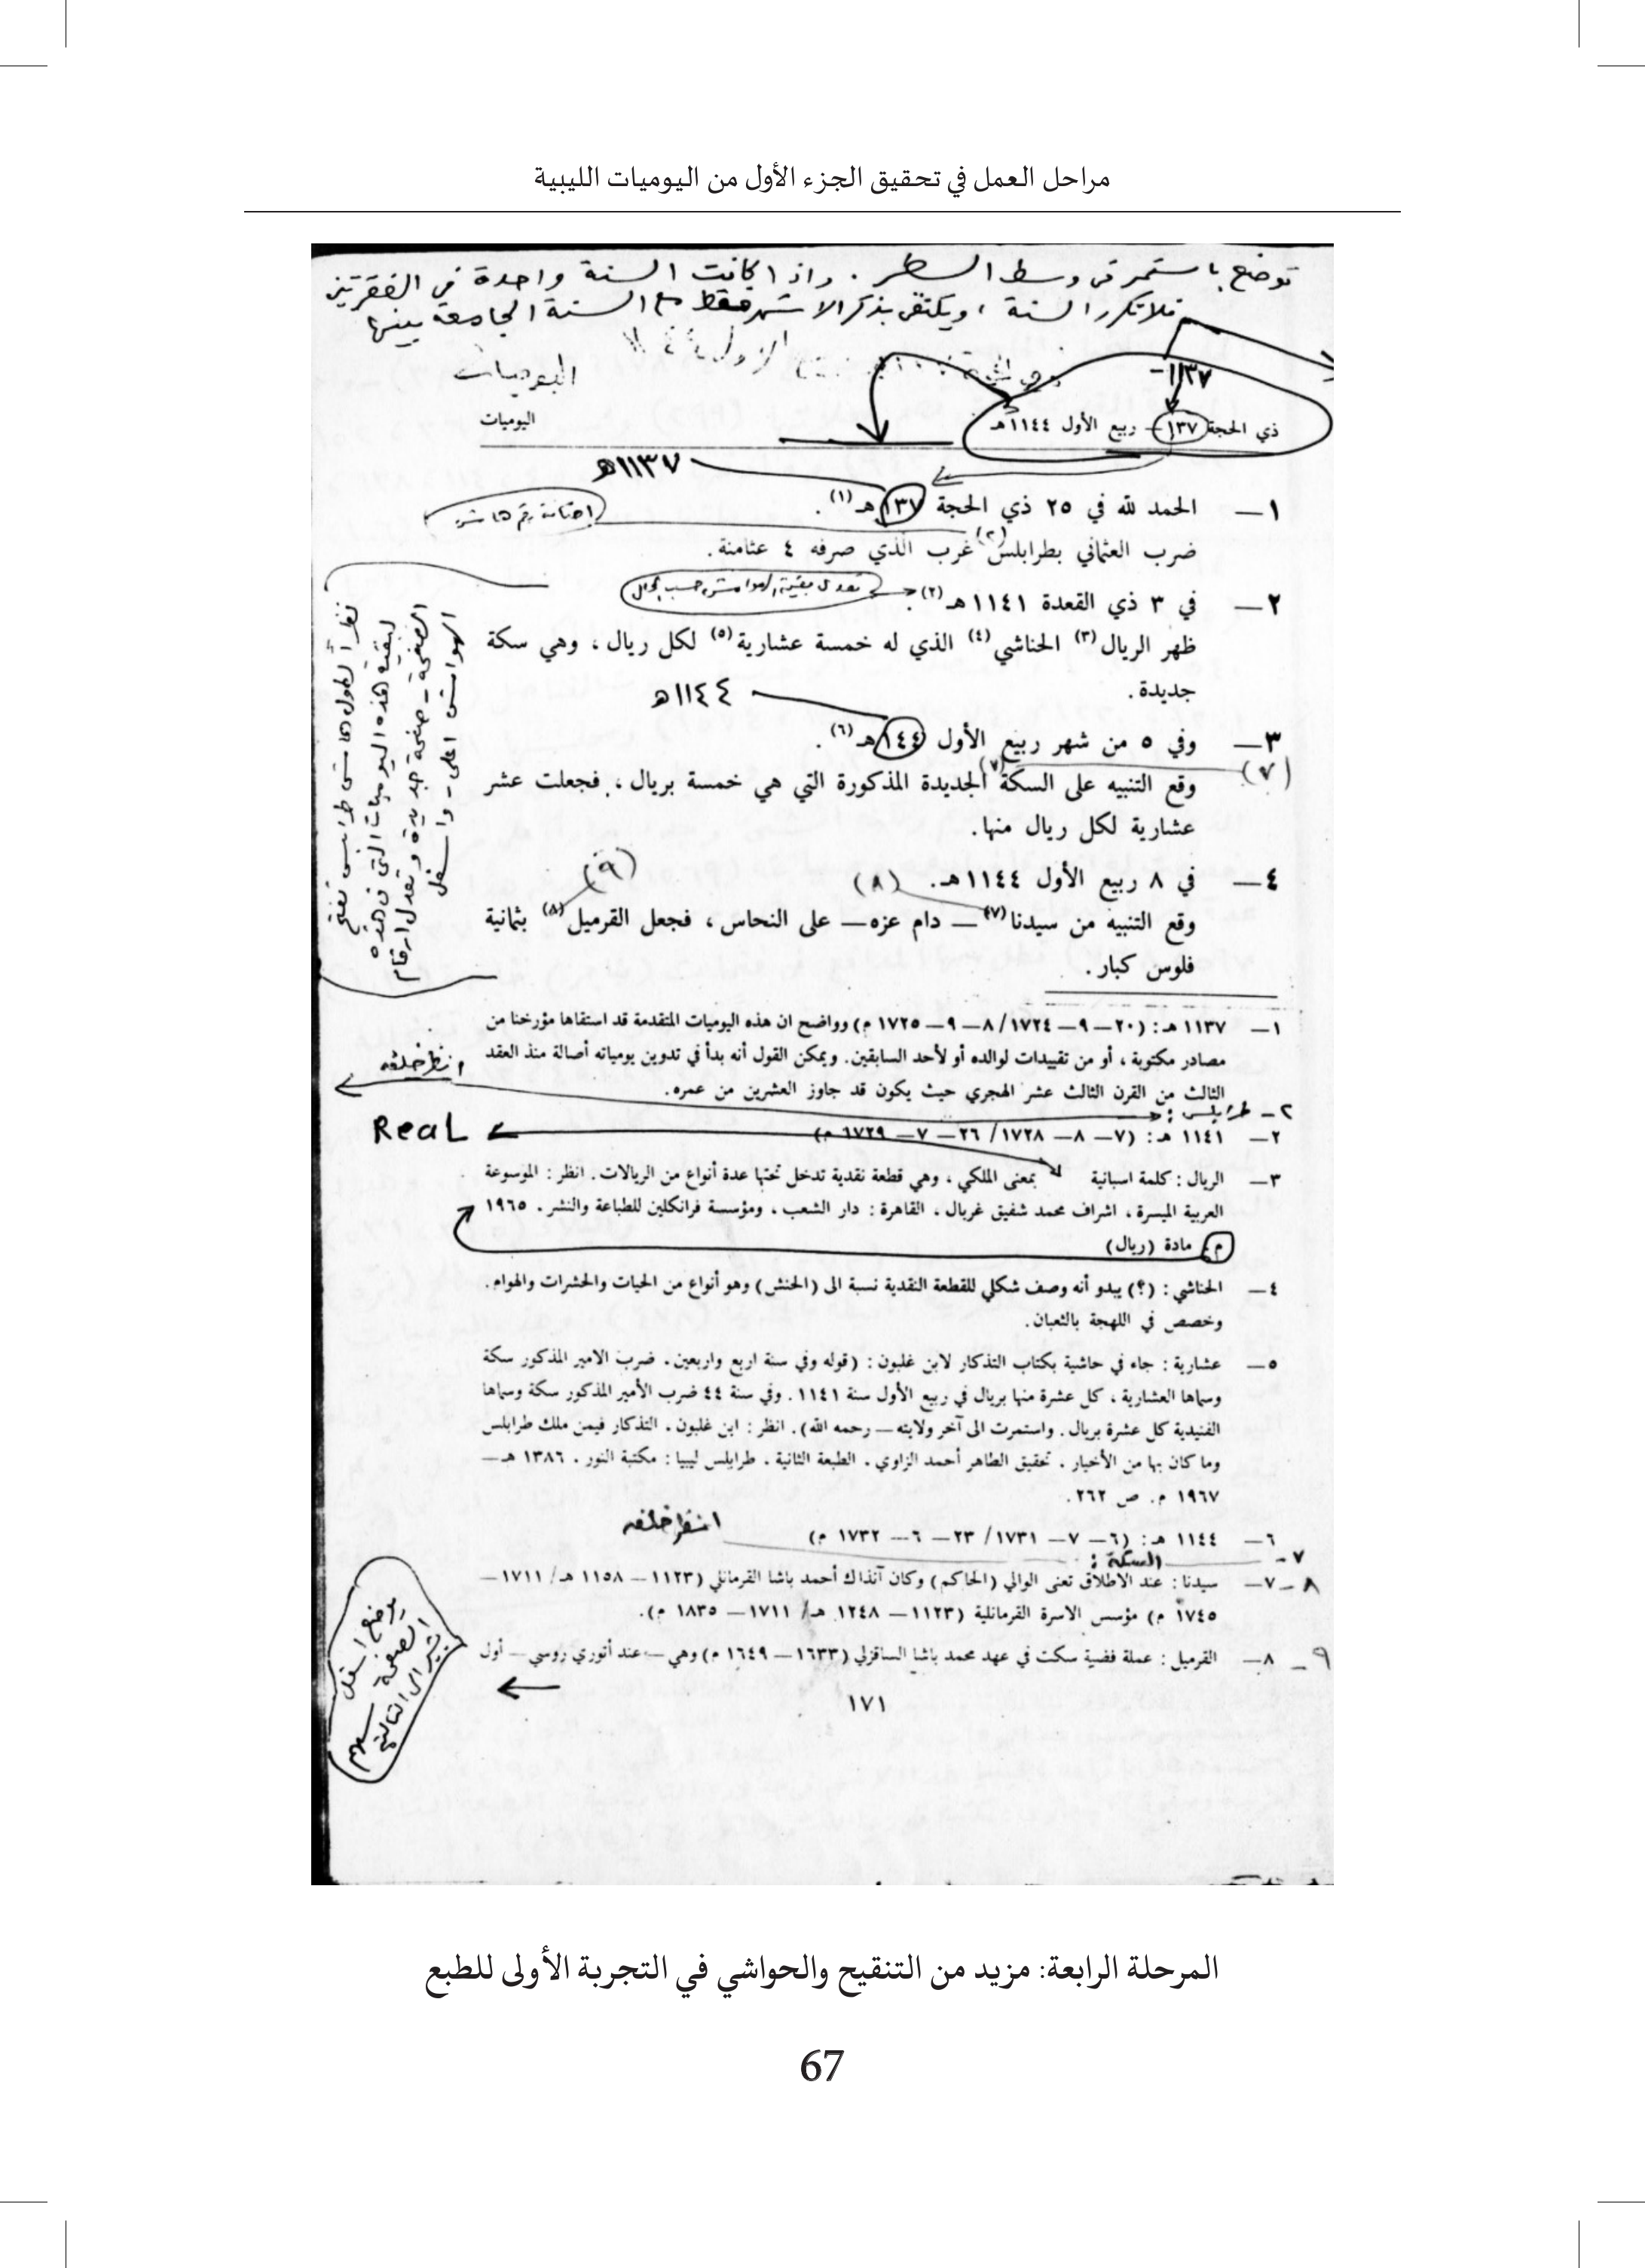 مراحل العمل في تحقيق الجزء الأول من اليوميات الليبية
توضع باستمرار في وسط السطر . واذا كانت السنة واحدة في الفقرتين
فلا تكرر السنة ، ويكتفى بذكر الاشهر فقط مع السنة الجامعة بينها
اليوميات
١١٣٧-
ذي الحجة ١٣٧ — ربيع الأول ١١٤٤هـ
اليوميات
١١٣٧هـ
١— الحمد لله في ٢٥ ذي الحجة ١٣٧هـ(١).
ضرب العثماني بطرابلس(٢) غرب الذي صرفه ٤ عثامنة.
تعدل بقية الهوامش حسب الحال
٢— في ٣ ذي القعدة ١١٤١هـ(٢).
ظهر الريال(٣) الحناشي(٤) الذي له خمسة عشارية(٥) لكل ريال ، وهي سكة
جديدة.
١١٤٤هـ
٣— وفي ٥ من شهر ربيع الأول ١٤٤هـ(٦).
(٧)
وقع التنبيه على السكة(٧) الجديدة المذكورة التي هي خمسة بريال ، فجعلت عشر
عشارية لكل ريال منها.
(٩)
٤— في ٨ ربيع الأول ١١٤٤هـ. (٨)
وقع التنبيه من سيدنا(٧) — دام عزه — على النحاس ، فجعل القرميل(٨) بثمانية
فلوس كبار.
نظراً لطول هامش طرابلس تفتح
لبقية هذه اليوميات التي في هذه
الصفحة - صفحة جديدة وتعدل ارقام
الهوامش اعلى - واسفل
١— ١١٣٧ هـ: (٢٠—٩—١٧٢٤/ ٨—٩—١٧٢٥ م) وواضح ان هذه اليوميات المتقدمة قد استقاها مؤرخنا من
مصادر مكتوبة ، أو من تقييدات لوالده أو لأحد السابقين. ويمكن القول أنه بدأ في تدوين يومياته أصالة منذ العقد
انظر خلفه
الثالث من القرن الثالث عشر الهجري حيث يكون قد جاوز العشرين من عمره.
٢- طرابلس :
٢— ١١٤١ هـ: (٧—٨—١٧٢٨/ ٢٦—٧—١٧٢٩ م)
Real
٣— الريال : كلمة اسبانية بمعنى الملكي ، وهي قطعة نقدية تدخل تحتها عدة أنواع من الريالات. انظر : الموسوعة
العربية الميسرة ، اشراف محمد شفيق غربال ، القاهرة : دار الشعب ، ومؤسسة فرانكلين للطباعة والنشر. ١٩٦٥
م. مادة (ريال)
٤— الحناشي : (؟) يبدو أنه وصف شكلي للقطعة النقدية نسبة الى (الحنش) وهو أنواع من الحيات والحشرات والهوام.
وخصص في اللهجة بالثعبان.
٥— عشارية : جاء في حاشية بكتاب التذكار لابن غلبون : (قوله وفي سنة اربع واربعين. ضرب الامير المذكور سكة
وسماها العشارية ، كل عشرة منها بريال في ربيع الأول سنة ١١٤١. وفي سنة ٤٤ ضرب الأمير المذكور سكة وسماها
الفنيدية كل عشرة بريال. واستمرت الى آخر ولايته — رحمه الله). انظر : ابن غلبون. التذكار فيمن ملك طرابلس
وما كان بها من الأخبار. تحقيق الطاهر أحمد الزاوي. الطبعة الثانية. طرابلس ليبيا : مكتبة النور. ١٣٨٦ هـ—
١٩٦٧ م. ص ٢٦٢.
انظر خلفه
٦— ١١٤٤ هـ: (٦—٧—١٧٣١/ ٢٣—٦—١٧٣٢ م)
٧- السكة :
٨- ٧— سيدنا : عند الاطلاق تعنى الوالي (الحاكم) وكان آنذاك أحمد باشا القرمانلي (١١٢٣—١١٥٨ هـ/ ١٧١١—
١٧٤٥ م) مؤسس الاسرة القرمانلية (١١٢٣—١٢٤٨ هـ/ ١٧١١—١٨٣٥ م).
٩- ٨— القرميل : عملة فضية سكت في عهد محمد باشا الساقزلي (١٦٣٣—١٦٤٩ م) وهي — عند أتوري روسي — أول
يوضع اسفل
الصفحة سهم
يشير الى التالية
١٧١
المرحلة الرابعة: مزيد من التنقيح والحواشي في التجربة الأولى للطبع
67